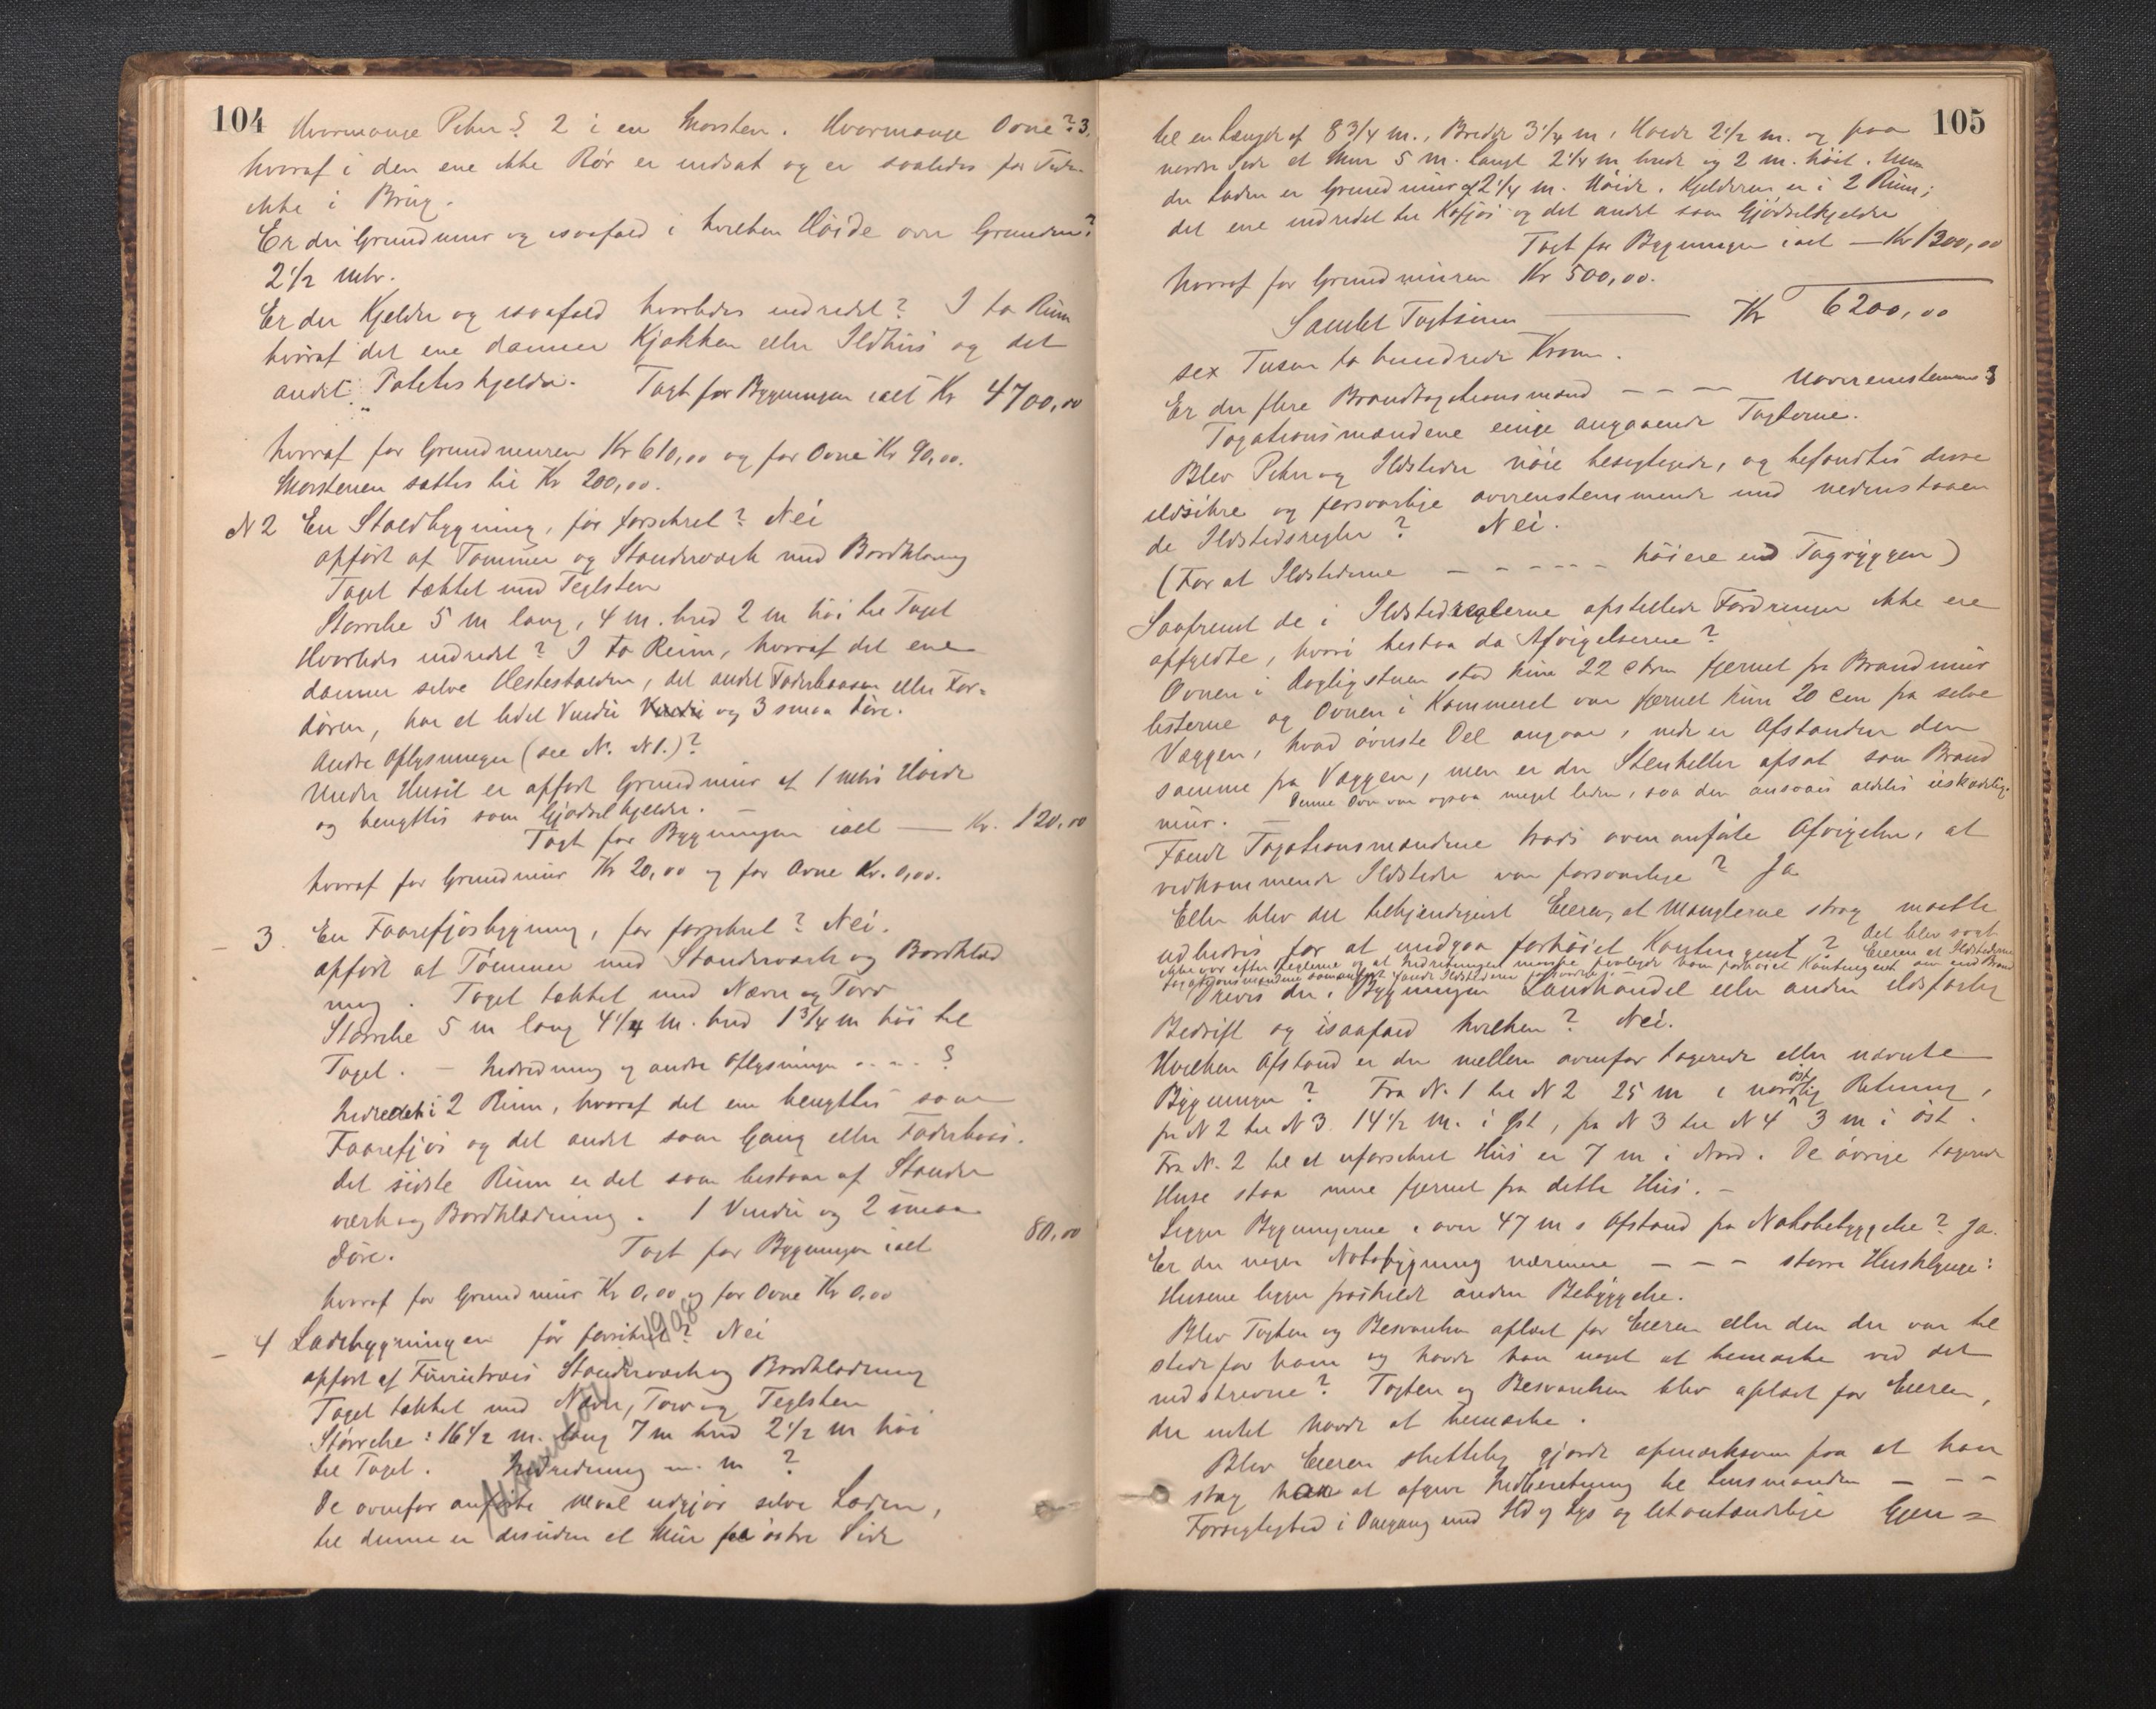 104
Hvormange Peher? 2 i en Skorsten. Hvormange Ovne? 3.
hvoraf i den ene ikke Rör er indsat og er saaledes for Tiden
ikke i Brug.
Er der Grundmur og isaafald i hvilken Höide over Grunden?
2 1/2 mtr.
Er der Kjelder og isaafald hvorledes indredet? I to Rum
hvoraf det ene danner Kjøkken eller Ildhus og det
andet Potetes kjelder. Taxt for Bygningen ialt Kr 4700,00
hvoraf for Grundmuren Kr 610,00 og for Ovne Kr 90,00.
Skorstenen sættes til Kr 200,00.
N 2 En Staldbygning, før forsikret? Nei
opført af Tømmer og Standerværk med Bordklæning
Taget tækket med Teglsten
Størrelse 5 m lang, 4 m. bred 2 m høi til Taget
Hvorledes indredet? I to Rum, hvoraf det ene
danner selve Hestestalden, det andet Foderbaasen eller For-
døren, har et lidet Vindu Vindu og 3 smaa Døre.
Andre Oplysninger (see N. N 1.)?
Under Huset er opført Grundmur af 1 Meters Høide
og benyttes som Gjødselkjelder. –
Taxt for Bygningen ialt — Kr. 120,00
hvoraf for Grundmur Kr 20,00 og for Ovne Kr. 0,00.
– 3. En Faarefjøsbygning, før forsikret? Nei.
opført af Tømmer med Standerværk og Bordklæd
ning. Taget tækket med Næver og Torv
Størrelse 5 m lang 4 1/4 m. bred 1 3/4 m høi til
Taget. – Indredning og andre Oplysninger . . – . ?
Indredet i 2 Rum, hvoraf det ene benyttes som
Faarefjøs og det andet som Gang eller Foderbaas.
Det sidste Rum er det som bestaar af Stander
værk og Bordklædning. 1 Vindu og 2 smaa
Døre. Taxt for Bygningen ialt 80,00
hvoraf for Grundmur Kr 0,00 og for Ovne Kr 0,00
– 4 Ladebygningen før forsikret? Nei
1908
opført af Furutræes Standerværk og Bordklædning
Taget tækket med Næver, Torv og Teglsten
Størrelse: 16 1/2 m. lang 7 m bred 2 1/2 m høi
til Taget. Indredning m. m ?
De ovenfor anførte Maal udgjør selve Laden,
til denne er desuden et Skur paa østre Side
105
til en Længde af 8 3/4 m., Bredde 3 1/4 m, Høide 2 1/2 m. og paa
nordre Side et Skur 5 m. langt 2 1/4 m bredt og 2 m. høit. Un
der Laden er Grundmur af 2 1/4 m. Høide. Kjelderen er i 2 Rum;
det ene indredet til Kofjøs og det andet som Gjødselkjelder
Taxt for Bygningen ialt — Kr 1300,00
hvoraf for Grundmuren Kr 500,00.
Samlet Taxtsum — Kr 6200,00
sex Tusen to hundrede Kroner.
Er der flere Brandtaxationsmænd – – – Uoverensstemmelse?
Taxationsmændene enige angaaende Taxterne.
Blev Peher og Ildsteder nøie besigtigede, og befandtes disse
ildsikre og forsvarlige overensstemmende med nedenstaaen
de Ildstedsregler? Nei.
(For at Ildstederne – – – – – høiere end Tagryggen)
Saafremt de i Ildstedreglerne opstillede Fordringer ikke ere
opfyldte, hvori bestaa da Afvigelserne?
Ovnen i Dagligstuen stod kun 22 ctm fjernet fra Brandmur
listerne og Ovnen i Kammeret var fjernet kun 20 cm fra selve
Væggen, hvad øverste Del angaar, nede er Afstanden den
samme fra Væggen, men er der Stenheller opsat som Brand
mur. – Denne Ovn var ogsaa meget liden, saa den ansaaes aldeles uskadelig.
Fandt Taxationsmændene trods ovenanførte Afvigelser, at
vedkommende Ildsteder var forsvarlige? Ja
Eller blev det tilkjendegivet Eieren, at Manglerne strax maatte
udbedres for at undgaa forhøiet Kontingent? Det blev sagt
Eieren at Ildstederne
ikke var efter Reglerne og at Indretningen maaske paalagde ham forhøiet Kontingent om end Brand
taxationsmændene somanført fandt Ildstederne forsvarlige. –
Drives der i Bygningen Landhandel eller anden ildsfarlig
Bedrift og isaafald hvilken? Nei.
Hvilken Afstand er der mellem ovenfor taxerede eller nævnte
Bygninger? Fra N. 1 til N 2 25 m i nordøstlig Retning,
fra N 2 til N 3 14 1/2 m. i Øst, fra N 3 til N 4 3 m i øst.
Fra N. 2 til et uforsikret Hus er 7 m i Nord. De øvrige taxerede
Huse staa mere fjernet fra dette Hus. –
Ligger Bygningerne i over 47 m s Afstand fra Nabobebyggelse? Ja.
Er der nogen Nabobygning nærmere – – – større Husklynge:
Husene ligger frastillet anden Bebyggelse.
Blev Taxten og Beskrivelsen oplæst for Eieren eller den der var til
stede for ham og havde han noget at bemærke ved det
nedskrevne? Taxten og Beskrivelsen blev oplæst for Eieren,
der intet havde at bemærke.
Blev Eieren skriftlig gjort opmærksom paa at han
strax har at afgive Indberetning til Lensmanden – – –
Forsigtighed i Omgang med Ild og Lys og letantændelige Gjen=